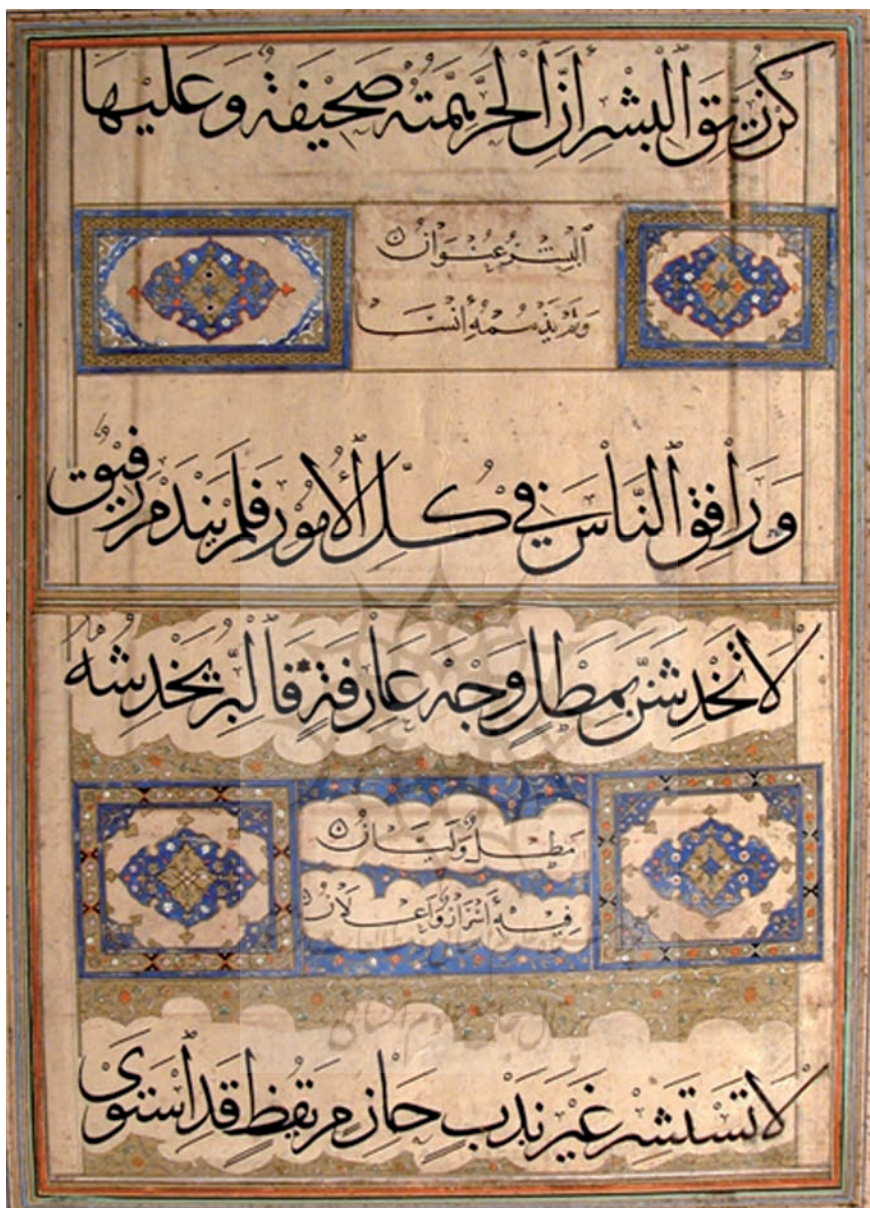 كن ريق البشر إن الحر همته صحيفة وعليها
البشر عنوان
ولم يذممه أنسان
ورافق الناس في كل الأمور فلم يندم رفيق
لا تخدشن بمطل وجه عارفة فالبر يخدشه
مطل وليان
فيه أسرار واعلان
پرتال جامع علوم انسانی
لا تستشر غير ندب حازم يقظ قد استوى